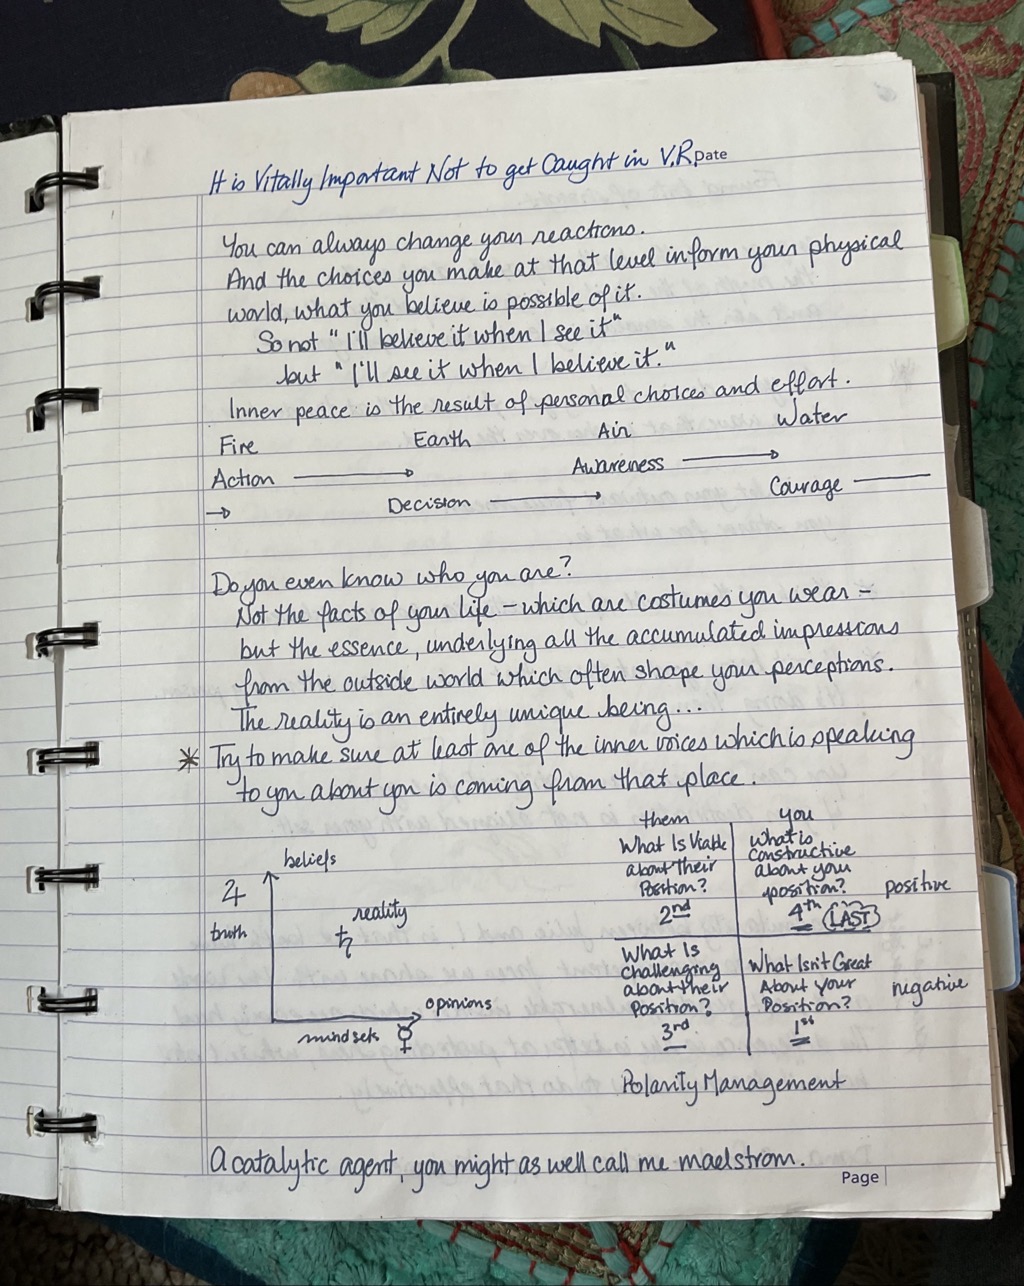 It is Vitally Important Not to get Caught in V.R. Date
You can always change your reactions.
And the choices you make at that level inform your physical
world, what you believe is possible of it.
So not "I'll believe it when I see it"
but "I'll see it when I believe it."
Inner peace is the result of personal choices and effort.
Fire Earth Air Water
Action → Awareness →
→ Decision → Courage —
Do you even know who you are?
Not the facts of your life - which are costumes you wear -
but the essence, underlying all the accumulated impressions
from the outside world which often shape your perceptions.
The reality is an entirely unique being...
* Try to make sure at least one of the inner voices which is speaking
to you about you is coming from that place.
beliefs
♃
truth
reality
♄
opinions
mindsets ☿
them
What Is Viable
about their
Position?
2nd
you
What is
constructive
about your
position?
4th LAST
positive
What Is
challenging
about their
Position?
3rd
What Isn't Great
About Your
Position?
1st
negative
Polarity Management
A catalytic agent, you might as well call me maelstrom.
Page